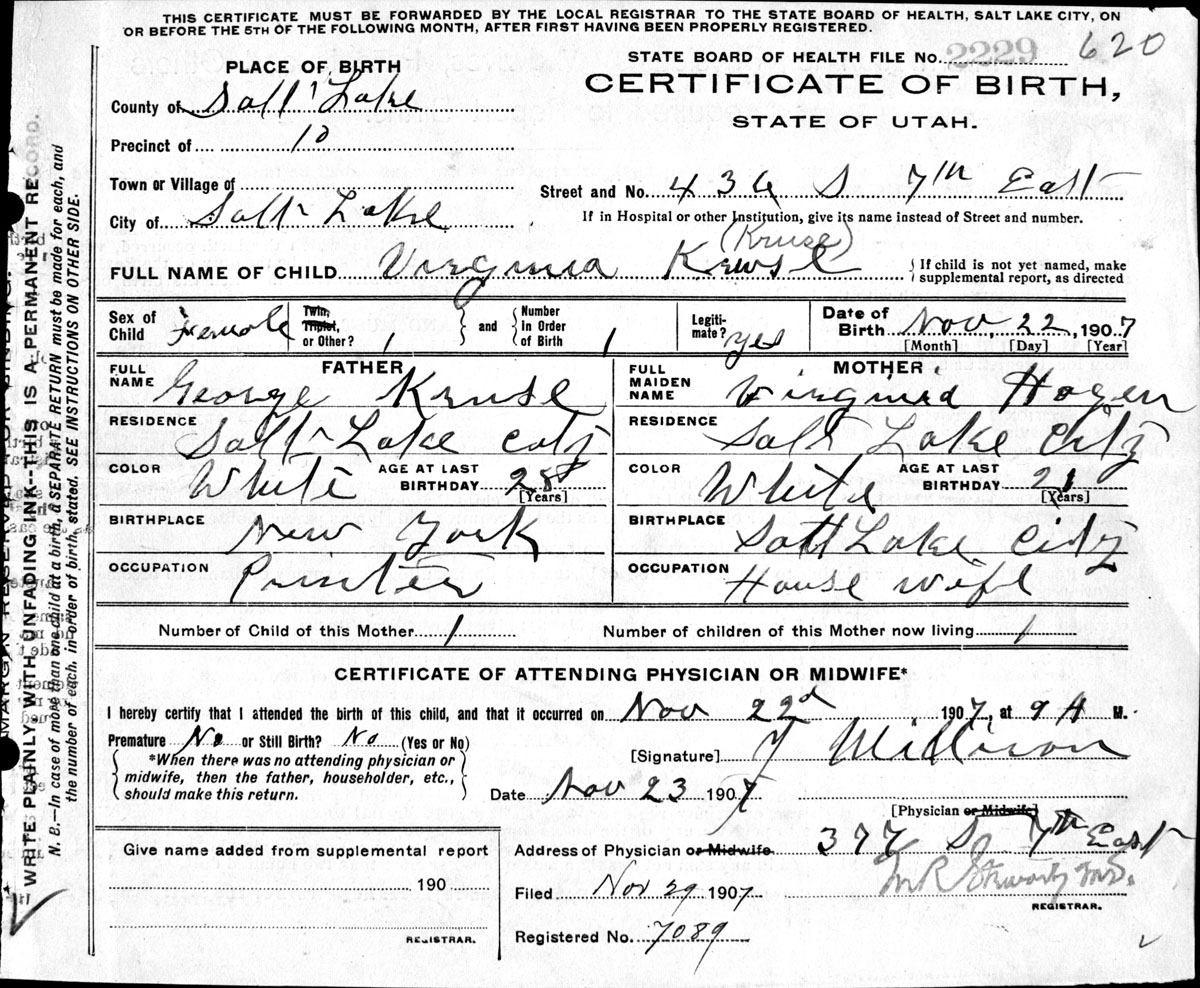 THIS CERTIFICATE MUST BE FORWARDED BY THE LOCAL REGISTRAR TO THE STATE BOARD OF HEALTH, SALT LAKE CITY, ON
OR BEFORE THE 5TH OF THE FOLLOWING MONTH, AFTER FIRST HAVING BEEN PROPERLY REGISTERED.
STATE BOARD OF HEALTH FILE No. 2229 620
PLACE OF BIRTH
CERTIFICATE OF BIRTH,
STATE OF UTAH.
County of Salt Lake
Precinct of 10
Town or Village of
Street and No. 436 S 7th East
City of Salt Lake
If in Hospital or other Institution, give its name instead of Street and number.
(Kruse)
FULL NAME OF CHILD Virginia Kruse
{ If child is not yet named, make
supplemental report, as directed
Sex of Child Female
Twin, Triplet, or Other? 1
and
Number In Order of Birth 1
Legiti-mate? Yes
Date of Birth Nov 22, 1907
[Month] [Day] [Year]
FATHER
FULL NAME George Kruse
RESIDENCE Salt Lake City
COLOR White
AGE AT LAST BIRTHDAY 28
[Years]
BIRTHPLACE New York
OCCUPATION Printer
MOTHER
FULL MAIDEN NAME Virginia Hogen
RESIDENCE Salt Lake City
COLOR White
AGE AT LAST BIRTHDAY 21
[Years]
BIRTHPLACE Salt Lake City
OCCUPATION House wife
Number of Child of this Mother 1
Number of children of this Mother now living 1
CERTIFICATE OF ATTENDING PHYSICIAN OR MIDWIFE*
I hereby certify that I attended the birth of this child, and that it occurred on Nov 22d 1907, at 9 A M.
Premature No or Still Birth? No (Yes or No)
[Signature]
{ *When there was no attending physician or
midwife, then the father, householder, etc.,
should make this return. }
Date Nov 23 1907
[Physician or Midwife]
Address of Physician or Midwife 377 S 7th East
Give name added from supplemental report
190
REGISTRAR.
Filed Nov 29 1907
REGISTRAR.
Registered No. 7089
MARGIN RESERVED FOR BINDING.
WRITE PLAINLY WITH UNFADING INK—THIS IS A PERMANENT RECORD.
N. B.—In case of more than one child at a birth, a SEPARATE RETURN must be made for each, and
the number of each, in order of birth, stated. SEE INSTRUCTIONS ON OTHER SIDE.